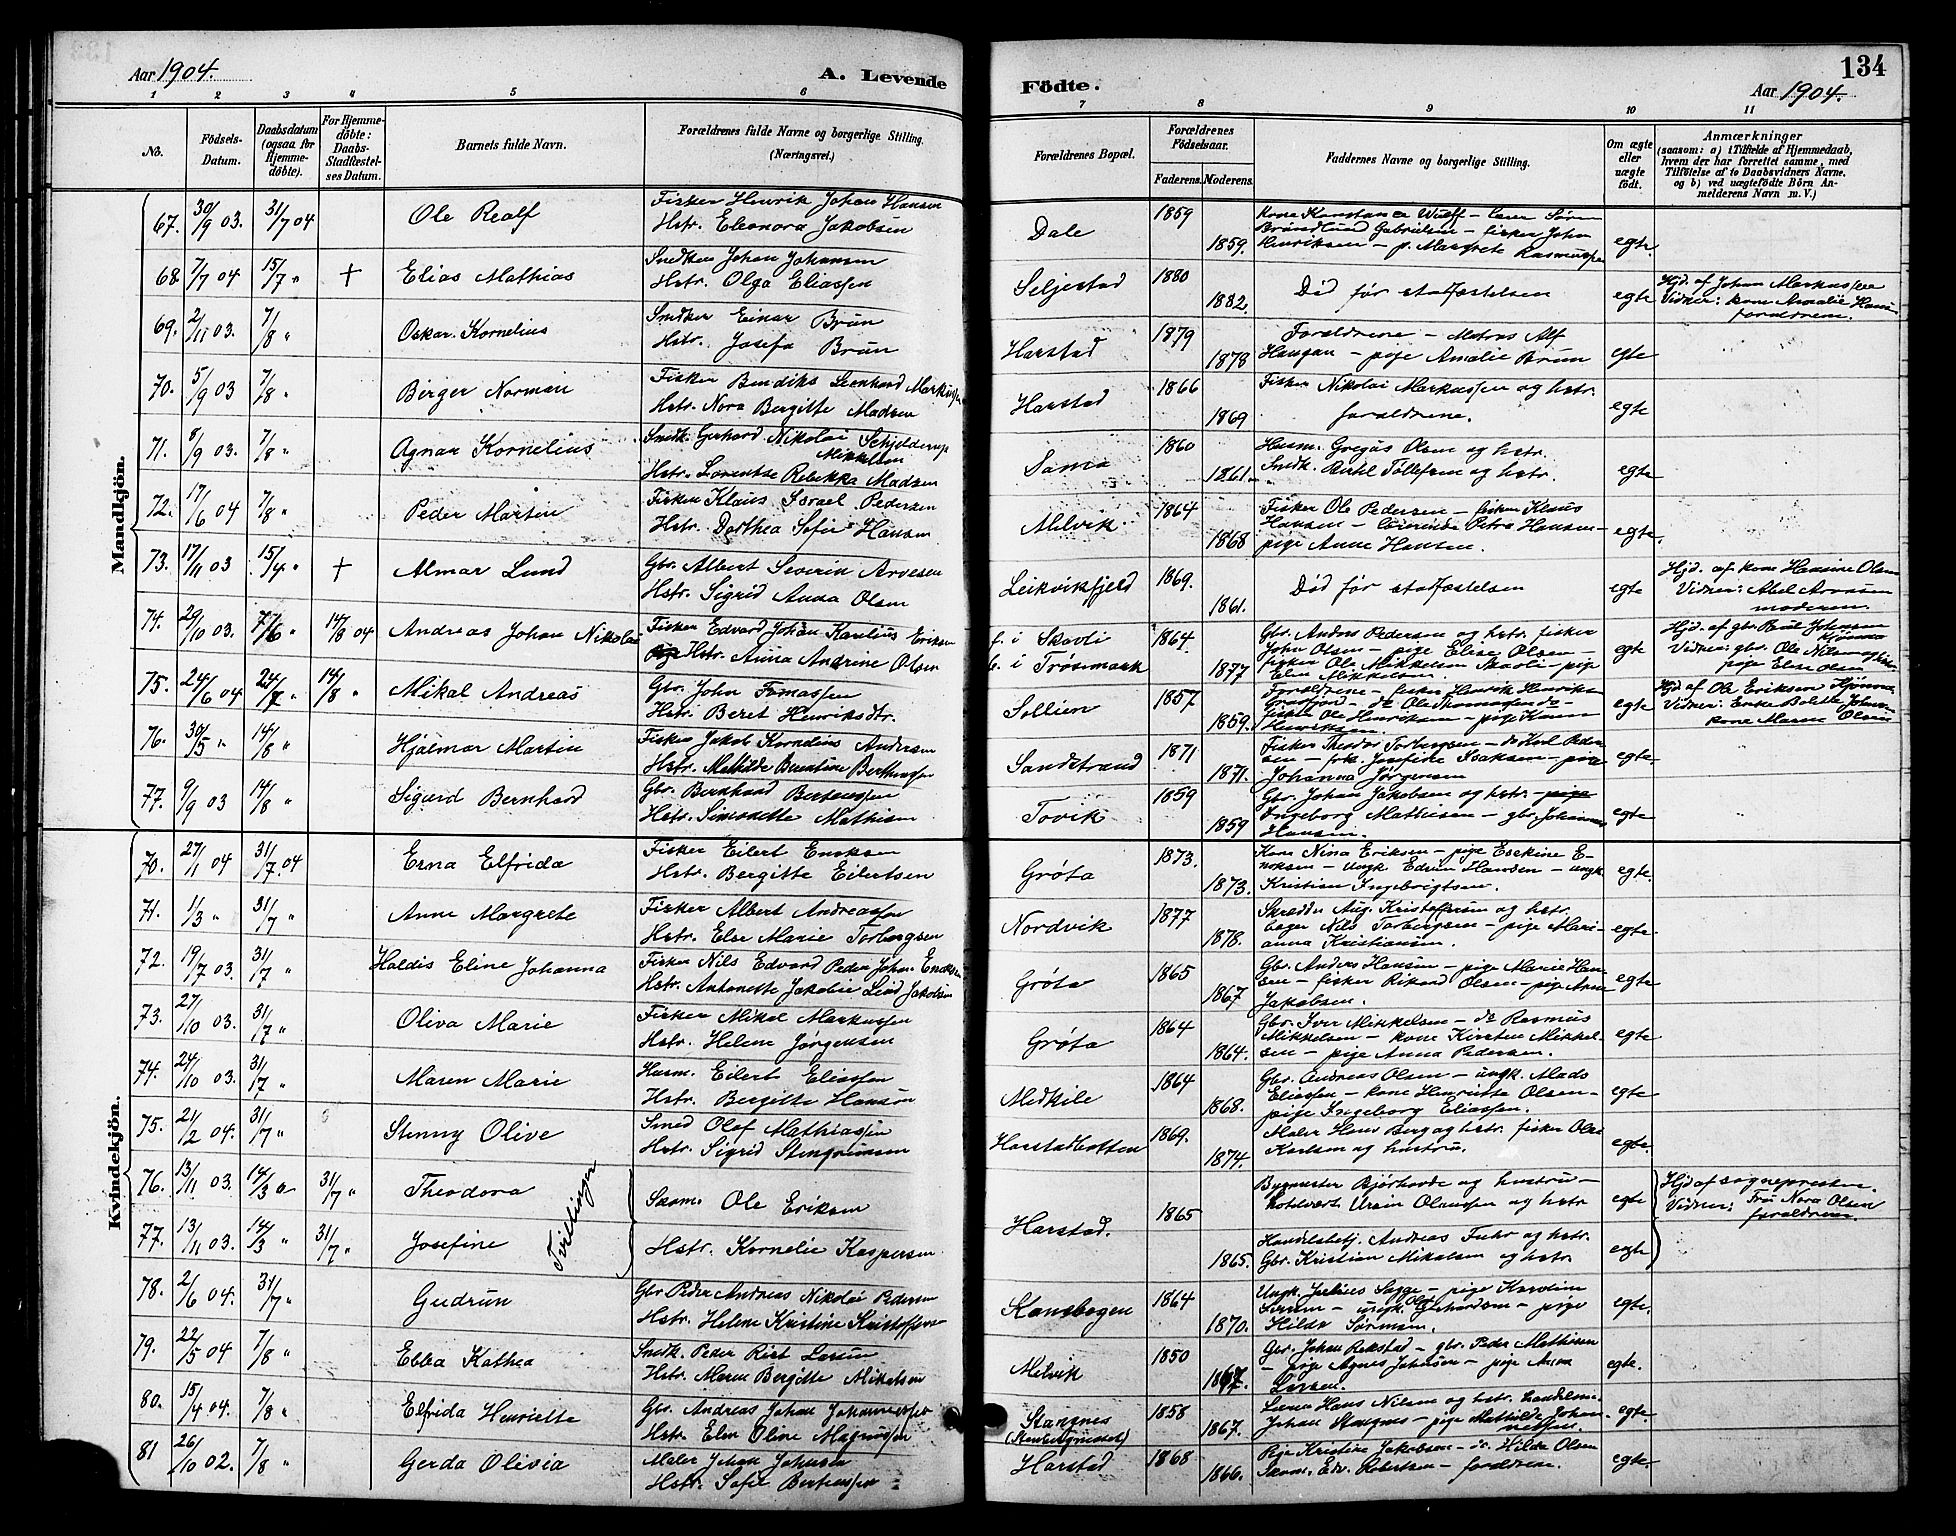 Aar 1904.
A. Levende
Födte.
134
Aar 1904.
1 2 3 4 5 6 7 8 9 10 11
No.
Födsels-Datum.
Daabsdatum (ogsaa for Hjemme-döbte).
For Hjemme-döbte: Daabs-Stadfæstel-ses Datum.
Barnets fulde Navn.
Forældrenes fulde Navne og borgerlige Stilling. (Næringsvei.)
Forældrenes Bopæl.
Forældrenes Födselsaar.
Faderens. Moderens.
Faddernes Navne og borgerlige Stilling.
Om ægte eller uægte födt.
Anmærkninger
(saasom: a) i Tilfælde af Hjemmedaab, hvem der har forrettet samme, med Tilföielse af to Daabsvidners Navne, og b) ved uægtefödte Börn An-melderens Navn m. V.)
Mandkjön.
67. 30/9 03. 31/7 04 Ole Realf Fisker Henrik Johan Hansen
Hstr. Eleonora Jakobsen Dale 1859 1859. egte.
68 7/7 04 15/7 " + Elias Mathias Snedker Johan Johansen
Hstr. Olga Eliassen Seljestad 1880 1882. Död før stadfæstelsen egte Hjd. af Johan Markussen
Vidner: kone Amalie
forældrene.
69. 2/11 03. 7/8 " Oskar Kornelius Snedker Einar Brun
Hstr. Josefa Brun Harstad 1879 1878 Forældrene – Matros Alf
Haugan – pige Amalie Brun egte
70. 5/9 03 7/8 " Birger Norman Fisker Bendiks Leonhard Markussen
Hstr. Nora Bergitte Madsen Harstad 1866 1869 Fisker Nikolai Markussen og hstr.
forældrene. egte
71. 8/9 03. 7/8 " Agnar Kornelius Snedk. Gerhard Nikolai Schjelderup
Mikkelsen
Hstr. Lorentse Rebekka Madsen Sama 1860 1861 Husm. Olsen og hstr.
Snedk. Tollefsen og hstr. egte
72. 17/6 04 7/8 " Peder Martin Fisker Klaus Israel Pedersen
Hstr. Dorthea Sofie Hansen Melvik 1864 1868 Fisker Ole Pedersen – fisker Klaus
Hansen – lærerinde Petra Hansen –
pige Anne Hansen. egte.
73. 17/11 03 15/4 " + Almar Lund Gbr. Albert Severin Arvesen
Hstr. Sigrid Anna Olsen Leikvikfjeld 1869. 1861. Död før stadfæstelsen egte Hjd. af kone Hansine Olsen
Vidner: Abel Aronsen
moderen.
74. 29/10 03. 17/6 " 14/8 04 Andreas Johan Nikolai Fisker Edvard Johan Karelius Eriksen
Hstr. Anna Andrine Olsen f. i Skavli
b. i Trøsemark 1864. 1877 Gbr. Anders Pedersen og hstr. fisker
John Olsen – pige Elise Olsen –
fisker Ole Mikkelsen Skavli – pige
Elen Mikkelsen. egte Hjd. af gbr. Paul Johansen
Vidner: gbr. Ole Nilsen
pige Elise Olsen
75. 24/6 04 24/7 " 14/8 " Mikal Andreas Gbr. John Tomassen
Hstr. Beret Henriksdtr. Sollien 1857 1859. Forældrene – fisker Henrik Henriksen
fisker Ole Henriksen – pige
Henriksen. egte Hjd af Ole Eriksen
Vidner:
kone Maren Olsen
76. 30/5 " 14/8 " Hjalmar Martin Fisker Jakob Kornelius Andersen
Hstr. Mathilde Berntine Berthinsen Sandstrand 1871 1871. Fisker Theodor Torbergsen – do Karl Peder
sen – frk. Josefine Isaksen – pige
Johanna Jørgensen egte.
77. 9/9 03 14/8 " Sigurd Bernhard Gbr. Bernhard Bertinussen
Hstr. Simonette Mathisen Tovik 1859 1859 Gbr. Johan Jakobsen og hstr.
Ingeborg Mathiesen – gbr. Johannes
Hansen. egte
Kvindekjön.
70. 27/1 04 31/7 04 Erna Elfrida Fisker Eilert Enoksen
Hstr. Bergitte Eilertsen Grøta 1873. 1873. Kone Nina Eriksen – pige Eskine E-
noksen – ungk. Edvin Hansen – ungk.
Kristian Ingebrigtsen. egte.
71. 1/3 " 31/7 " Anne Margrete Fisker Albert Andreassen
Hstr. Else Marie Torbergsen Nordvik 1877 1878. Skrædder Aug. Kristofersen og hstr.
bager Nils Torbergsen – pige Mari-
anna Kristiansen. egte.
72. 19/7 03. 31/7 " Haldis Eline Johanna Fisker Nils Edvard Peder Johan Enoksen
Hstr. Antonette Jakobine Lind Jakobsen Grøta 1865 1867 Gbr. Anders Hansen – pige Marie Han-
sen – fisker Rikard Olsen – pige Anna
Jakobsen. egte
73. 27/10 03. 31/7 " Oliva Marie Fisker Mikal Markussen
Hstr. Helene Jørgensen Grøta 1864 1864. Gbr. Iver Mikkelsen – do Rasmus
Mikkelsen – kone Kirsten Mikkel-
sen – pige Anna Pedersen. egte
74. 24/10 03. 31/7 " Maren Marie Husm. Eilert Eliassen
Hstr. Bergitte Hanson Medkile 1864 1868. Gbr. Andreas Olsen – ungk. Mads
Eliassen – kone Henriette Olsen –
pige Ingeborg Eliassen. egte
75. 21/2 04. 31/7 " Stenny Olive Smed Olaf Mathiassen
Hstr. Sigrid Stengrimsen Harstadbotten 1869. 1874. Maler Hans Berg og hstr. fisker Ole
Karlsen og hustru. egte.
76. 13/11 03. 14/3 31/7 " Theodora
77. 13/11 03. 14/3 " 31/7 " Josefine
Tvillinger
Skom. Ole Eriksen
Hstr. Kornelie Kaspersen Harstad. 1865 1865. Bygmester Bjørhovde og hustru –
hotelvert Ursin Olaussen og hstr. egte
Handelsbetj. Andreas Fuhr og hstr.
Gbr. Kristian Mikalsen og hstr. egte
Hjd af sognepresten.
Vidner: Fru Nora Olsen
forældrene.
78. 2/6 04. 31/7 " Gudrun Gbr Peder Andreas Nikolai Pedersen
Hstr. Helene Kristine Kristoffersen Kansbogen 1864 1870. Ungk. Julius Sagge – pige Karoline
– ungk. Gerhardsen – pige
Hilda Sørensen. egte.
79. 22/5 04 7/8 " Ebba Kathea Snedk. Peder Riet Larsen
Hstr. Maren Bergitte Mikalsen Melvik 1850 1867. Gbr. Johan Rekstad – gbr. Peder Mathisen
– pige Agnes Johnsen – pige Anna
Larsen. egte.
80. 15/4 04. 7/8 " Elfrida Henriette Gbr. Andreas Johan Johannessen
Hstr. Elen Oline Magnussen Stangnes
(Stenbergnesset) 1858 1867. Lærer Hans Nilsen og hstr. handelsm.
Johan Stangnes – pige Mathilde Johan-
nessen. egte.
81 26/10 02. 7/8 " Gerda Olivia Maler Johan Johnsen
Hstr. Sofie Bertinussen Harstad 1868 1866. Pige Kristine Jakobsen – do. Hilda Olsen
Skom. Edv. Robertsen – forældrene. egte.